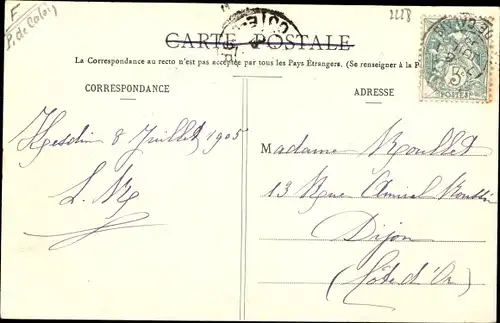 F
P. de Calais
2228
CARTE POSTALE
La Correspondance au recto n'est pas acceptée par tous les Pays Étrangers. (Se renseigner à la
CORRESPONDANCE
ADRESSE
Hesdin 8 Juillet 1905
L. R
Madame Roullet
13 Rue Amiral Roussin
Dijon
(Côte d'Or)
5c
POSTES
COTE